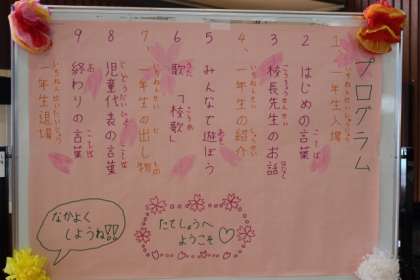 プログラム
1、一年生入場
2 はじめの言葉
3 校長先生のお話
4、一年生の紹介
5 みんなで遊ぼう
6 歌「校歌」
7、一年生の出し物
8 児童代表の言葉
9 終わりの言葉
一年生退場
たてしょうへ
ようこそ♡
なかよく
しようね!!